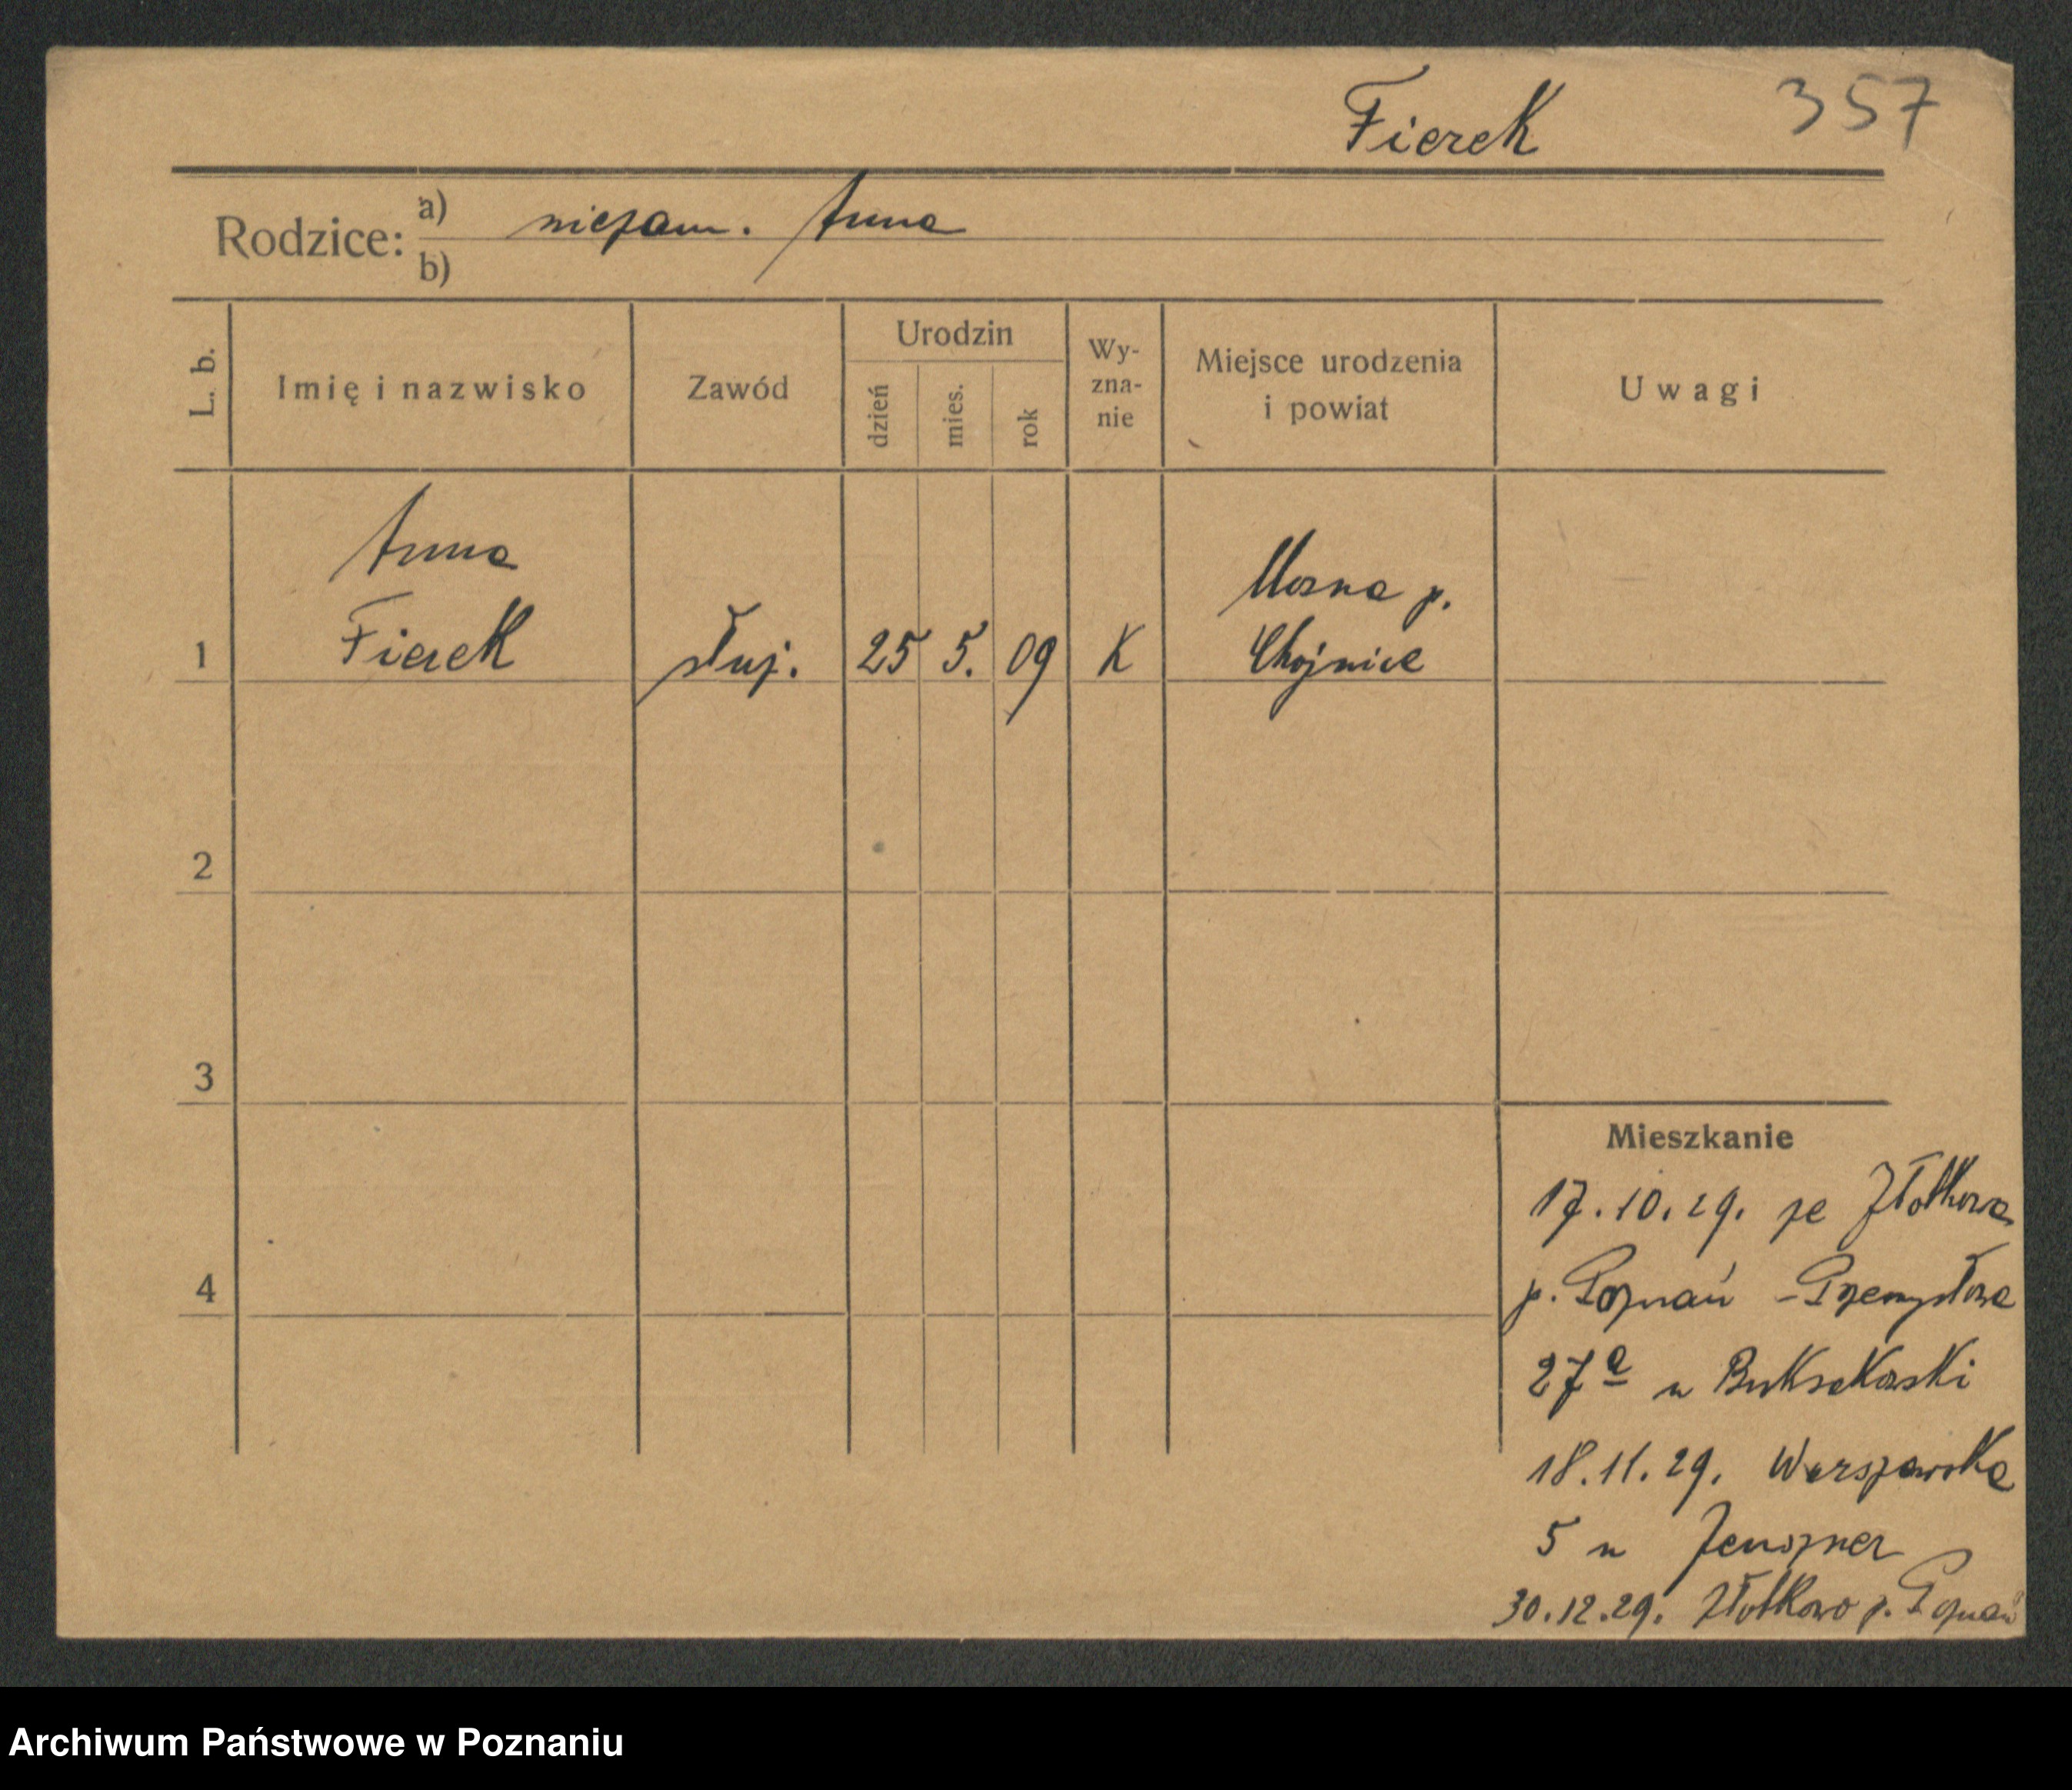 Fierek 357
Rodzice: a) niezam. Anna
b)
L. b. Imię i nazwisko Zawód Urodzin dzień mies. rok Wy-zna-nie Miejsce urodzenia i powiat Uwagi
Anna
Mosna p.
1 Fierek służ. 25 5. 09 K Chojnice
2
3
Mieszkanie
17.10.29. ze Złotkowa
4
p. Poznań - Przemysłowa
27a u
18.11.29. Warszawska
5 u
30.12.29. Złotkowo p. Poznań
Archiwum Państwowe w Poznaniu